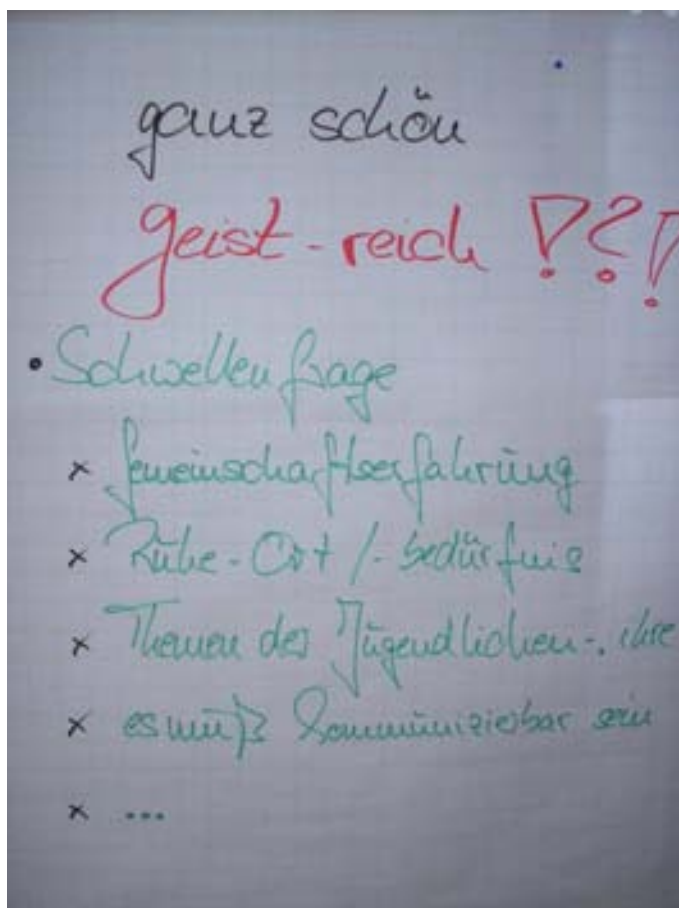 ganz schön
geist-reich !?!
• Schwellenfrage
x Gemeinschaftserfahrung
x Ruhe-Ort /-bedürfnis
x Themen der Jugendlichen-, ihre
x es muß kommunizierbar sein
x ...